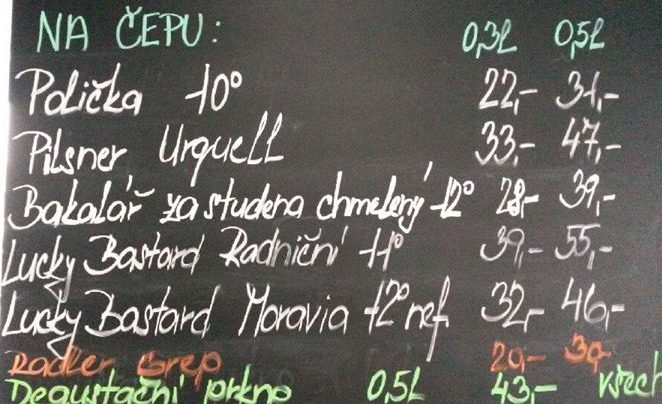 NA ČEPU: 0,3L 0,5L
Polička 10° 22,- 31,-
Pilsner Urquell 33,- 47,-
Bakalář za studena chmelený 12° 28,- 39,-
Lucky Bastard Radniční 11° 39,- 55,-
Lucky Bastard Moravia 12° nef. 32,- 46,-
Radler Grep 20,- 30,-
Degustační prkno 0,5L 43,- všech